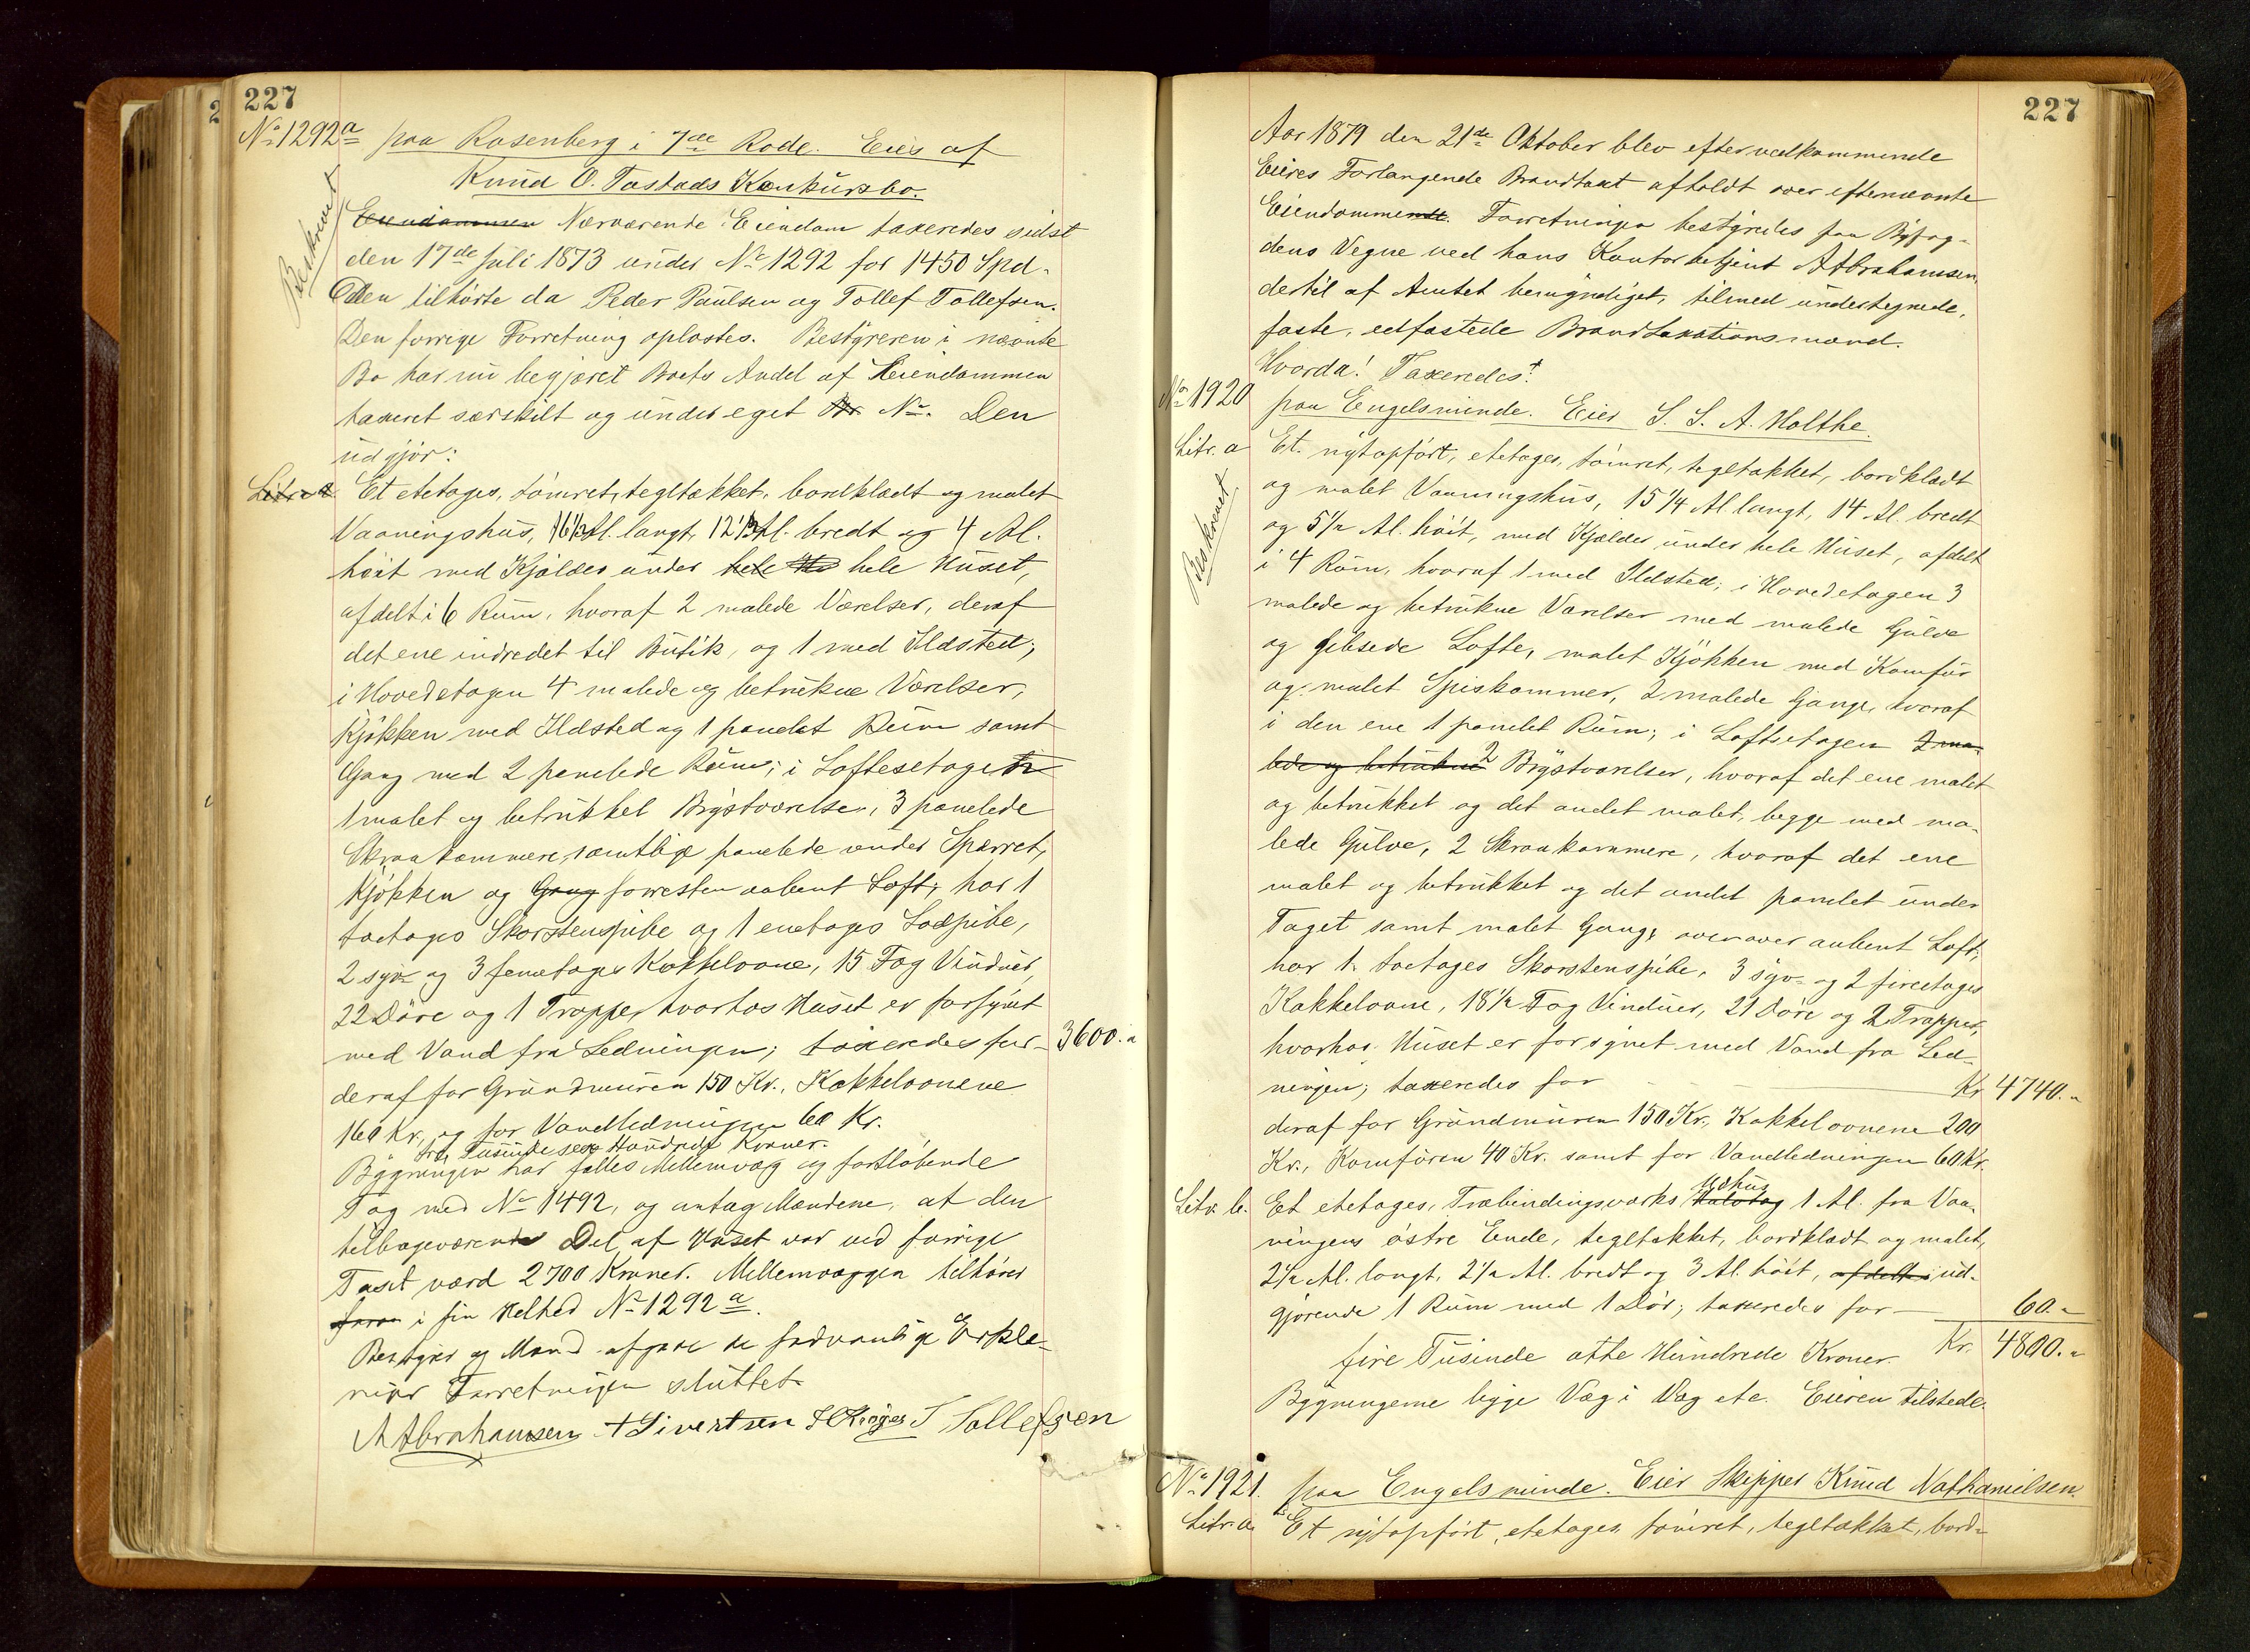 227
No 1292a paa Rosenberg i 7de Rode. Eies af
Knud O. Tastads Konkursbo.
Beskrevet
Eiendommen Nærværende Eiendom taxeredes sidst
den 17de Juli 1873 under No 1292 for 1450 Spd.
Den tilhørte da Peder Paulsen og Tollef Tollefsen.
Den forrige Forretning oplæstes. Bestyreren i nævnte
Bo har nu begjæret Boets Andel af Eiendommen
taxeret særskilt og under eget No. Den
udgjør:
Litr a Et etetages, tømret, tegltækket, bordklædt og malet
Vaaningshus, 16 1/3 Al. langt, 12 1/3 Al. bredt og 4 Al.
høit med Kjælder under hele Hu hele Huset,
afdelt i 6 Rum, hvoraf 2 malede Værelser, deraf
det ene indredet til Butik, og 1 med Ildsted;
i Hovedetagen 4 malede og betrukne Værelser,
Kjøkken med Ildsted og 1 panelet Rum samt
Gang med 2 panelede Rum; i Loftsetagen
1 malet og betrukket Brystværelse, 3 panelede
Skraakammere, samtlige panelede under Sperret,
Kjøkken og Gang forresten aabent Loft; har 1
toetages Skorstenspibe og 1 enetages Lodpibe,
2 syv- og 3 femetages Kakkelovne, 15 Fag Vinduer,
22 Døre og 1 Trappe, hvorhos Huset er forsynet
med Vand fra Ledningen; taxeredes for — 3600.
deraf for Grundmuren 150 Kr., Kakkelovnene
160 Kr. og for Vandledningen 60 Kr.
tre Tusinde sex Hundrede Kroner.
Bygningen har fælles Mellemvæg og fortløbende
Tag med No 1492, og antag Mændene, at den
tilbageværende Del af Huset var ved forrige
Taxt værd 2700 Kroner. Mellemvæggen tilhører
i sin Helhed No 1292a.
Bestyrer og Mænd afgave de sædvanlige Erklæ-
ringer Forretningen sluttet.
A Abrahamsen A Sivertsen T Tollefsen
227
Aar 1879 den 21de Oktober blev efter vedkommende
Eieres Forlangende Brandtaxt afholdt over efternævnte
Eiendomme. Forretningen bestyredes paa Byfog-
dens Vegne ved hans Kontorbetjent A Abrahamsen,
dertil af Amtet bemyndiget, tilmed undertegnede,
faste, edfæstede Brandtaxationsmænd.
Hvorda! Taxeredes:
No 1920 paa Engelsminde. Eier S. S. A. Holthe.
Beskrevet
Litr. a Et nyt opført, etetages, tømret, tegltækket, bordklædt
og malet Vaaningshus, 15 1/4 Al langt, 14 Al. bredt
og 5 1/2 Al. høit, med Kjælder under hele Huset, afdelt
i 4 Rum, hvoraf 1 med Ildsted; i Hovedetagen 3
malede og betrukne Værelser med malede Gulve
og gibsede Lofte, malet Kjøkken med Komfür
og malet Spiskammer, 2 malede Gange, hvoraf
i den ene 1 panelet Rum; i Loftsetagen 2 ma-
lede og betrukne 2 Brystværelser, hvoraf det ene malet
og betrukket og det andet malet, begge med ma-
lede Gulve, 2 Skraakammere, hvoraf det ene
malet og betrukket og det andet panelet under
Taget samt malet Gang, ovenover aabent Loft;
har 1 toetages Skorstenspibe, 3 syv- og 2 fireetages
Kakkelovne, 18 1/2 Fag Vinduer, 21 Døre og 2 Trapper,
hvorhos Huset er forsynet med Vand fra Led-
ningen; taxeredes for — Kr 4740.
deraf for Grundmuren 150 Kr., Kakkelovnene 200
Kr., Komfuren 40 Kr. samt for Vandledningen 60 Kr.
Litr. b. Et etetages, Træbindingsværks Halvtag Udhus 1 Al. fra Vaa-
ningens østre Ende, tegltækket, bordklædt og malet,
2 1/2 Al. langt, 2 1/2 Al. bredt og 3 Al. høit, afdelt i ud-
gjørende 1 Rum med 1 Dør; taxeredes for — 60.
fire Tusinde otte Hundrede Kroner. Kr. 4800.
Bygningerne ligge Væg i Væg etc. Eieren tilstede.
No 1921. paa Engelsminde. Eier Skipper Knud Nathanielsen.
Litr. a Et nyt opført, etetages tømret, tegltækket, bord-